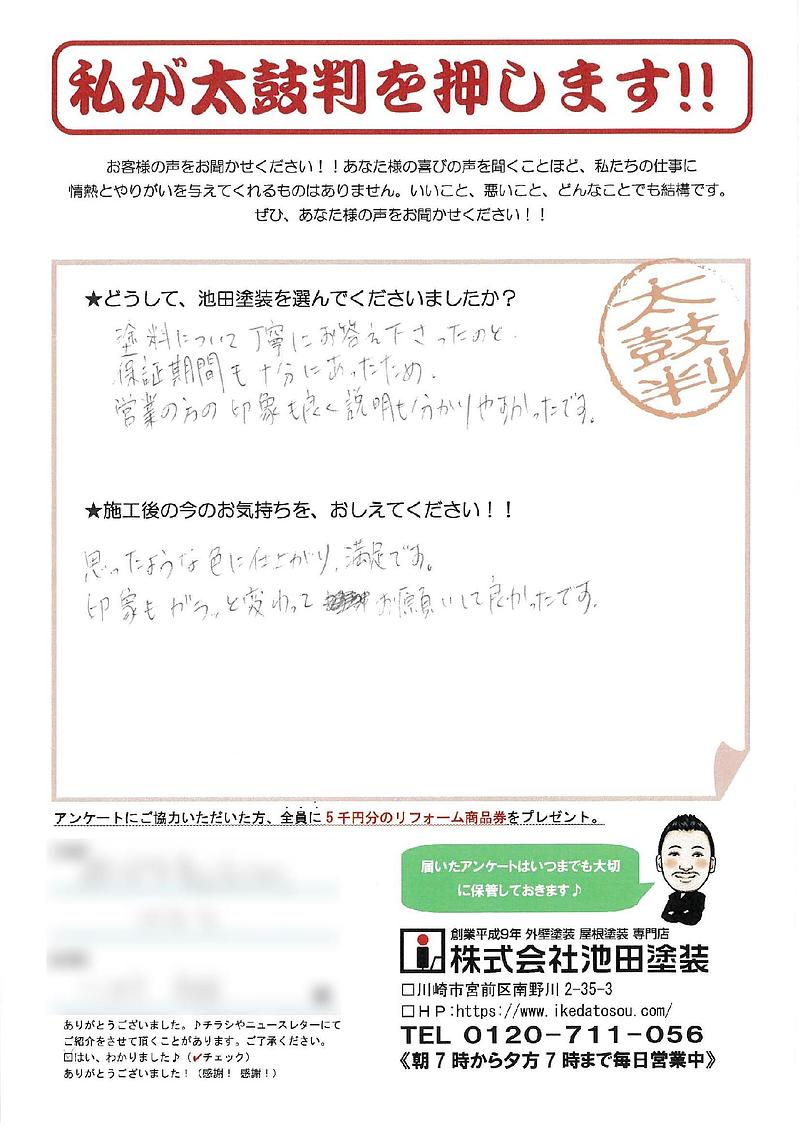 私が太鼓判を押します!!
お客様の声をお聞かせください！！あなた様の喜びの声を聞くことほど、私たちの仕事に
情熱とやりがいを与えてくれるものはありません。いいこと、悪いこと、どんなことでも結構です。
ぜひ、あなた様の声をお聞かせください！！
太鼓判
★どうして、池田塗装を選んでくださいましたか？
塗料について丁寧にお答え下さったのと、
保証期間も十分にあったため。
営業の方の印象も良く説明も分かりやすかったです。
★施工後の今のお気持ちを、おしえてください！！
思ったような色に仕上がり、満足です。
印象もガラッと変わって お願いして良かったです。
アンケートにご協力いただいた方、全員に5千円分のリフォーム商品券をプレゼント。
届いたアンケートはいつまでも大切
に保管しておきます♪
創業平成9年 外壁塗装 屋根塗装 専門店
株式会社池田塗装
□川崎市宮前区南野川 2-35-3
□ＨＰ:https://www.ikedatosou.com/
TEL 0120-711-056
《朝7時から夕方7時まで毎日営業中》
ありがとうございました。♪チラシやニュースレターにて
ご紹介をさせて頂くことがあります。ご了承ください。
☑はい、わかりました♪（✔チェック）
ありがとうございました！（感謝！ 感謝！）